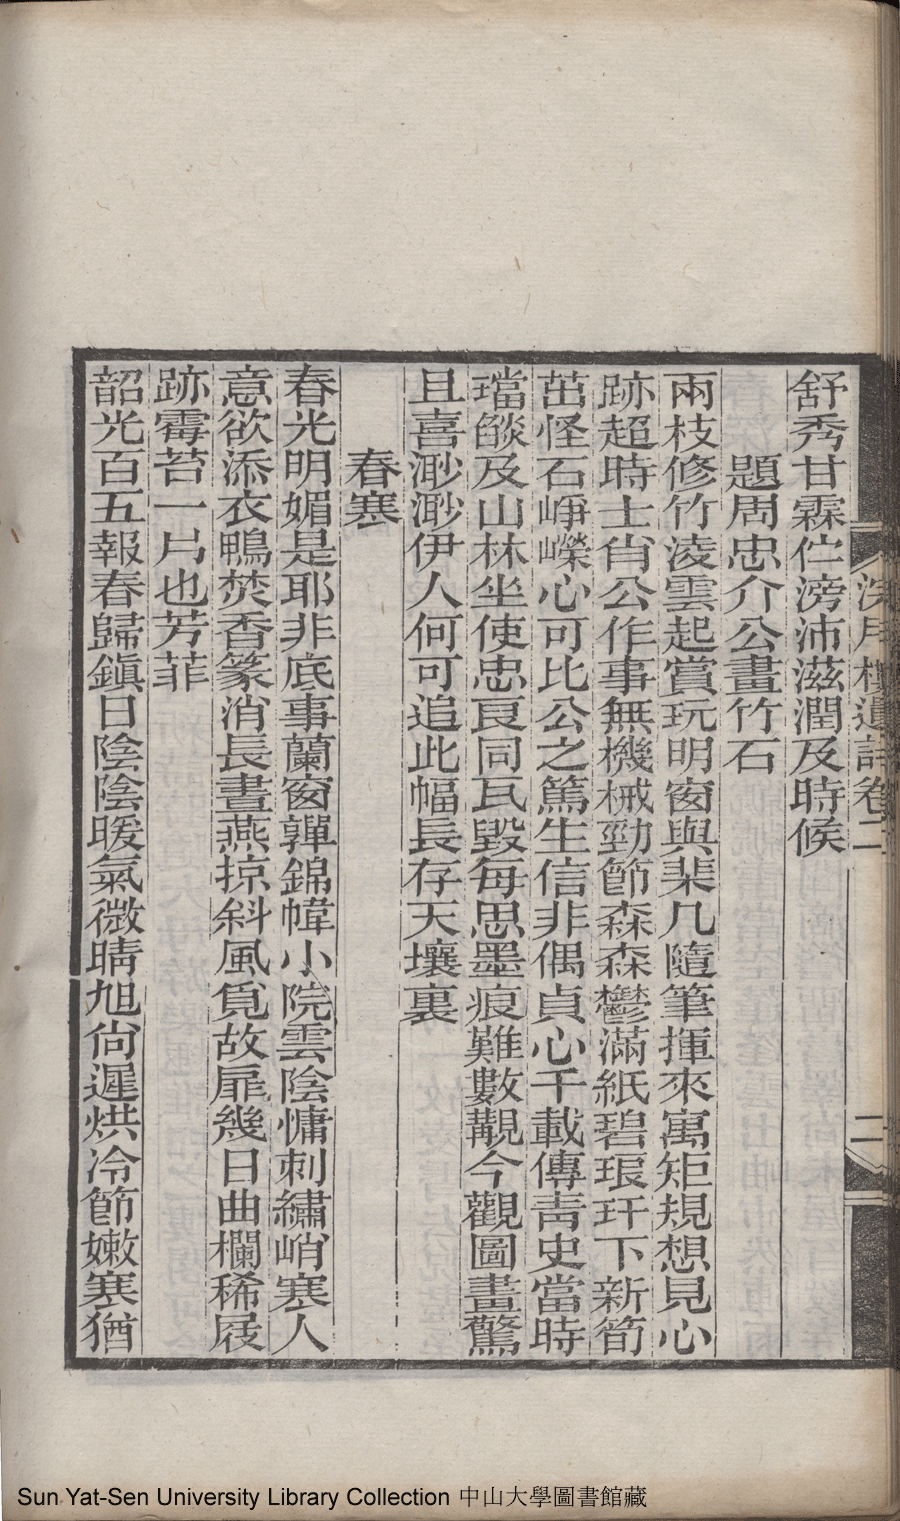 舒秀甘霖伫滂沛滋潤及時候
題周忠介公畫竹石
兩枝修竹凌雲起賞玩明窗與棐几隨筆揮來寓矩規想見心
跡超時士肖公作事無機械勁節森森鬱滿紙碧琅玕下新筍
茁怪石崢嶸心可比公之篤生信非偶貞心千載傳靑史當時
璫燄及山林坐使忠良同瓦毀每思墨痕難數覯今觀圖畫驚
且喜渺渺伊人何可追此幅長存天壤裏
春寒
春光明媚是耶非底事蘭窗嚲錦幃小院雲陰慵刺繡峭寒人
意欲添衣鴨焚香篆消長晝燕掠斜風覓故扉幾日曲欄稀屐
跡霉苔一片也芳菲
韶光百五報春歸鎮日陰陰暖氣微晴旭尙遲烘冷節嫩寒猶
月樓遺詩卷二
二
Sun Yat-Sen University Library Collection 中山大學圖書館藏